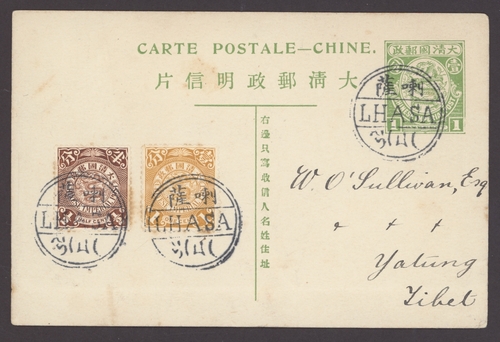 CARTE POSTALE—CHINE.
片信明政郵清大
政郵國清大
1 1
右邊只寫收信人名姓住址
薩喇
LHASA
W. O'Sullivan, Esq
Yatung
Tibet
薩喇
LHASA
薩喇
LHASA
HALF CENT